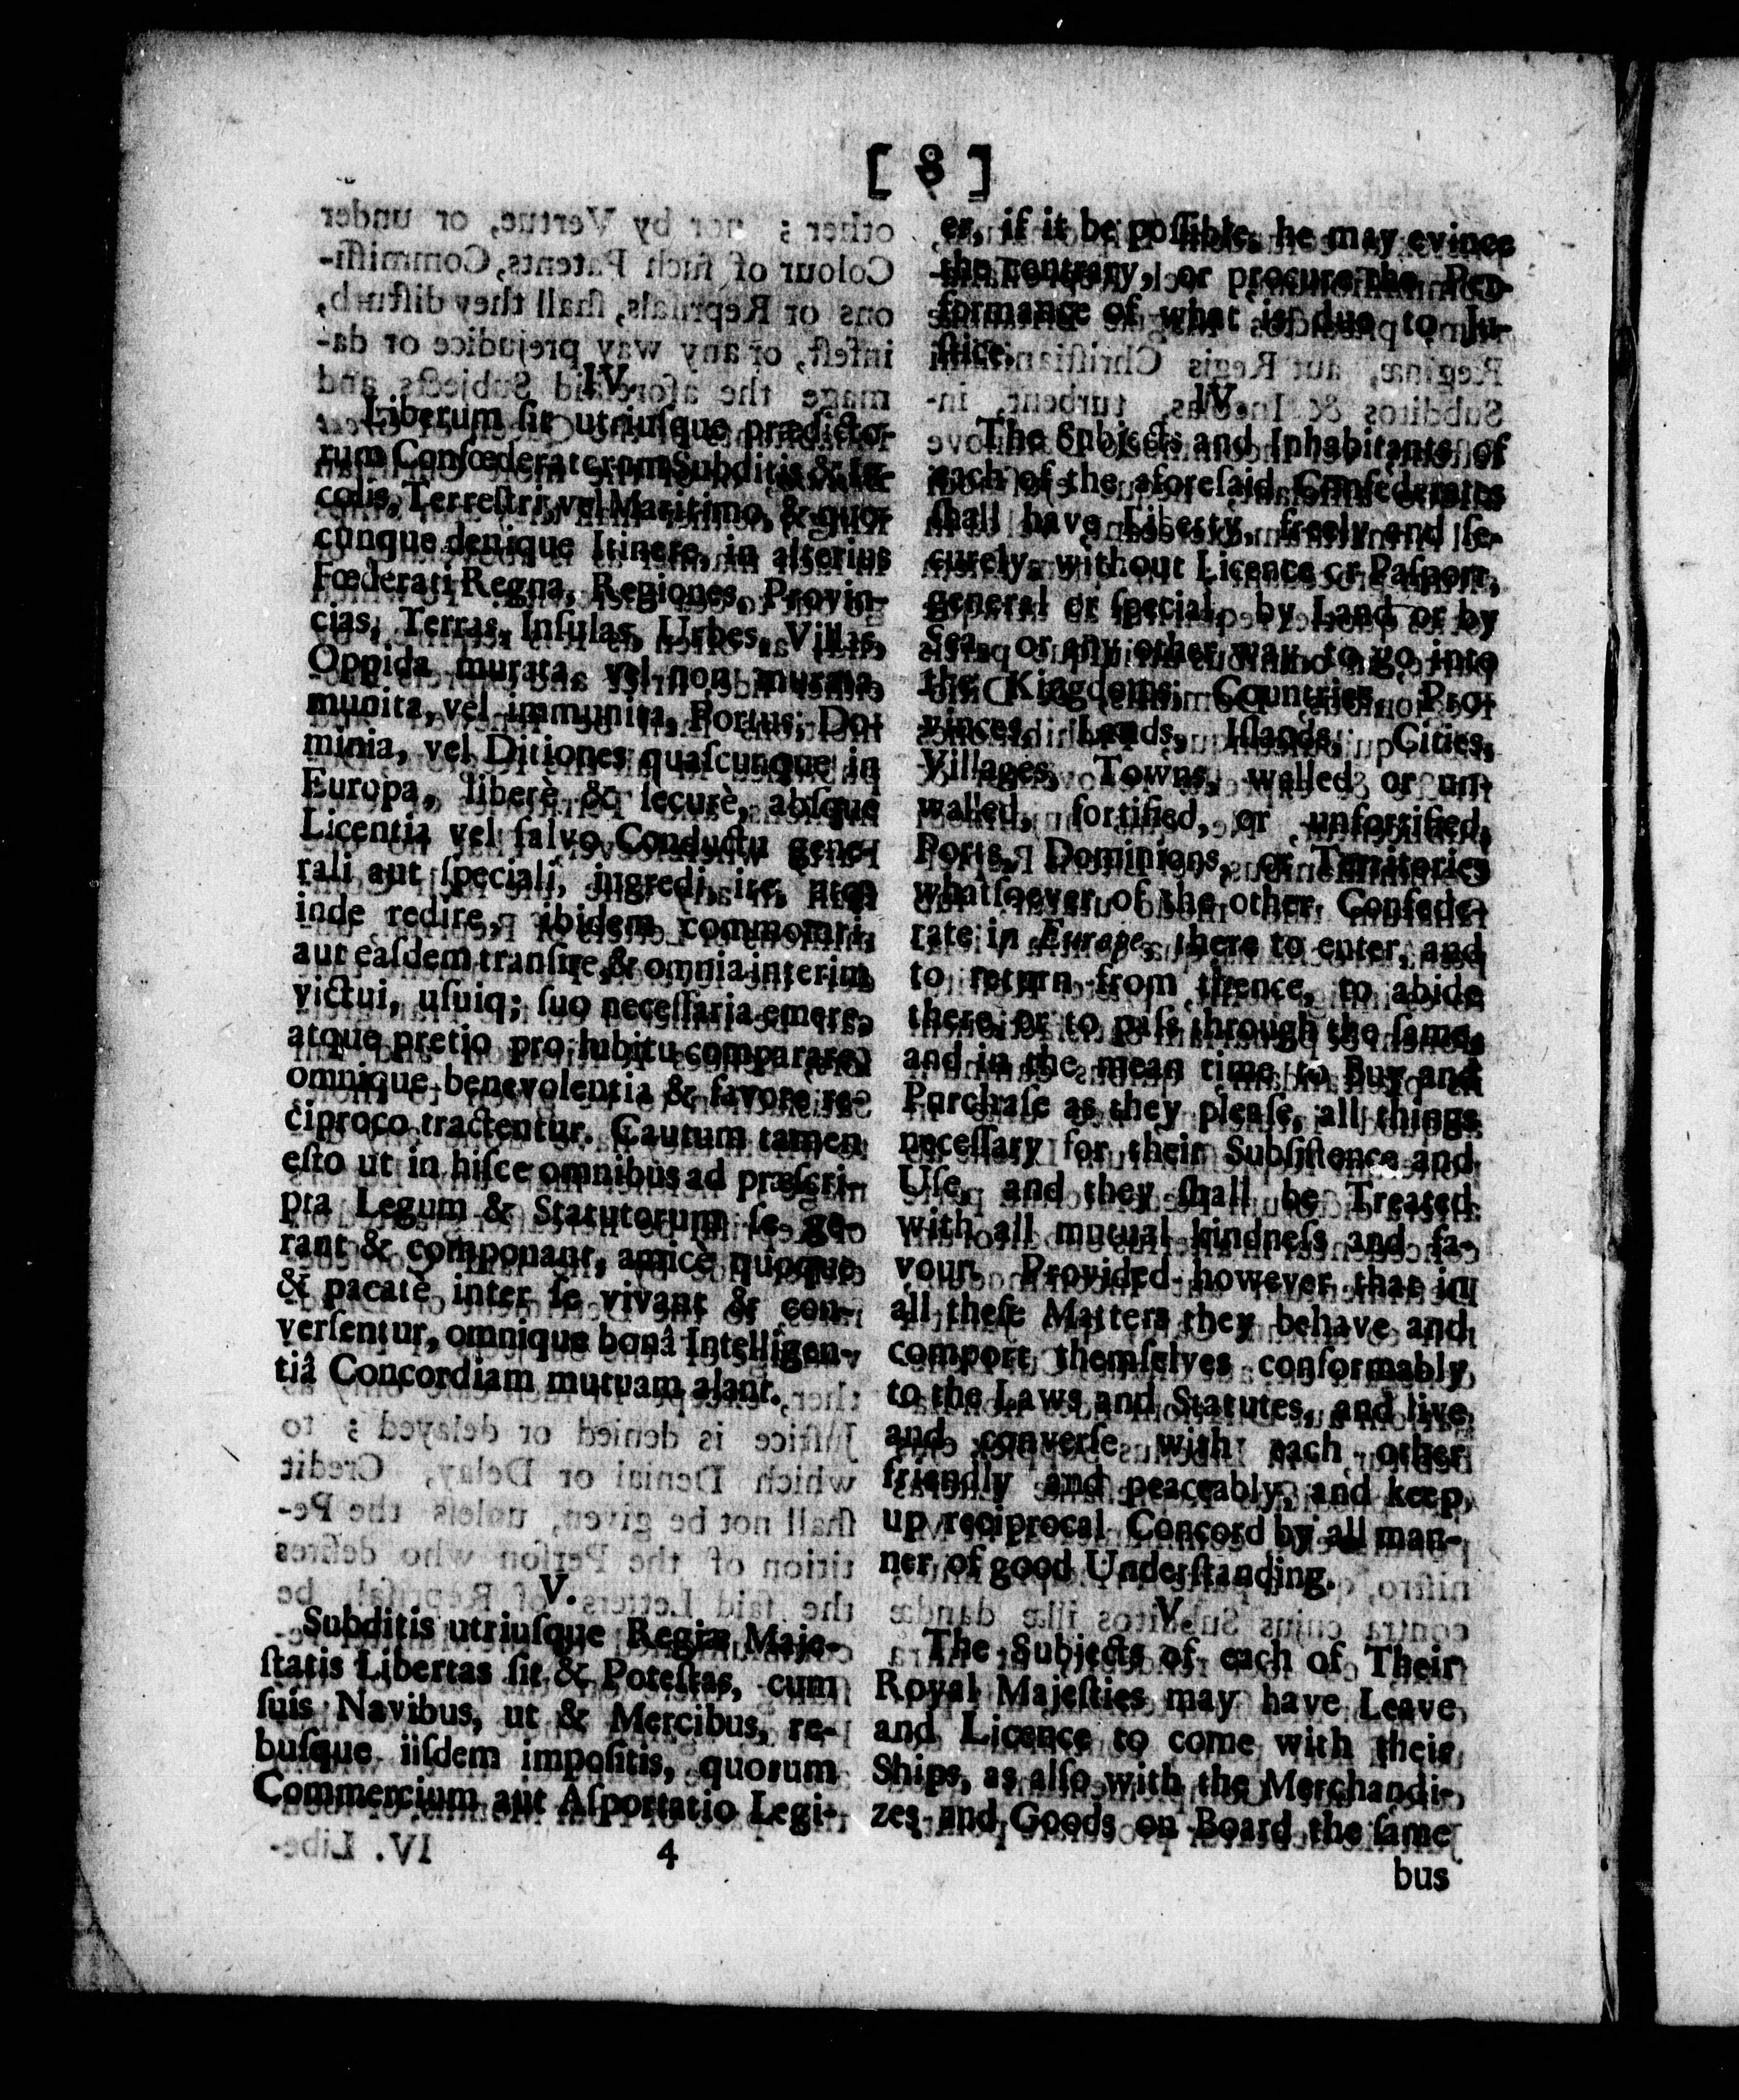 [ 8 ]
IV.
Liberum sit utriuſque prædicto-
rum Conſœderatorum Subditis & In-
colis, Terreſtri, vel Maritimo, & quo-
cunque denique Itinere, in alterius
Fœderati Regna, Regiones, Provin-
cias, Terras, Inſulas, Urbes, Villas,
Oppida murata, vel non murata,
munita, vel immunita, Portus, Do-
minia, vel Ditiones quaſcunque in
Europa, liberè & ſecurè, abſque
Licentia vel ſalvo Conductu gene-
rali aut ſpeciali, ingredi, ire,
inde redire, ibidem commorari,
aut eaſdem tranſire, & omnia interim
victui, uſuiq; ſuo neceſſaria emere,
atque pretio pro lubitu comparare,
omnique benevolentia & favore re-
ciproco tractentur. Cautum tamen
eſto ut in hiſce omnibus ad præſcri-
pta Legum & Statutorum ſe ge-
rant & componant, amicè quoque
& pacatè inter ſe vivant & con-
verſentur, omnique bonâ Intelligen-
tiâ Concordiam mutuam alant.
V.
Subditis utriuſque Regiæ Maje-
ſtatis Libertas ſit & Poteſtas, cum
ſuis Navibus, ut & Mercibus, re-
buſque iiſdem impoſitis, quorum
Commercium aut Aſportatio Legi-
4
er, if it be poſſible, he may evince
the contrary, or procure the Per-
formance of what is due to Ju-
ſtice.
IV.
The Subjects and Inhabitants of
each of the aforeſaid Confederates
ſhall have Liberty, freely and ſe-
curely, without Licence or Paſport,
general or ſpecial, by Land or by
Sea, or any other way, to go into
the Kingdoms, Countries, Pro-
vinces, Lands, Iſlands, Cities,
Villages, Towns, walled or un-
walled, fortified, or unfortified,
Ports, Dominions, or Territories
whatſoever of the other Confede-
rate in Europe, there to enter, and
to return from thence, to abide
there, or to paſs through the ſame,
and in the mean time to Buy and
Purchaſe as they pleaſe, all things
neceſſary for their Subſiſtence and
Uſe, and they ſhall be Treated
with all mutual kindneſs and fa-
vour. Provided however, that in
all theſe Matters they behave and
comport themſelves conformably
to the Laws and Statutes, and live
and converſe with each other
friendly and peaceably, and keep
up reciprocal Concord by all man-
ner of good Underſtanding.
V.
The Subjects of each of Their
Royal Majeſties may have Leave
and Licence to come with their
Ships, as alſo with the Merchandi-
zes and Goods on Board the ſame
bus